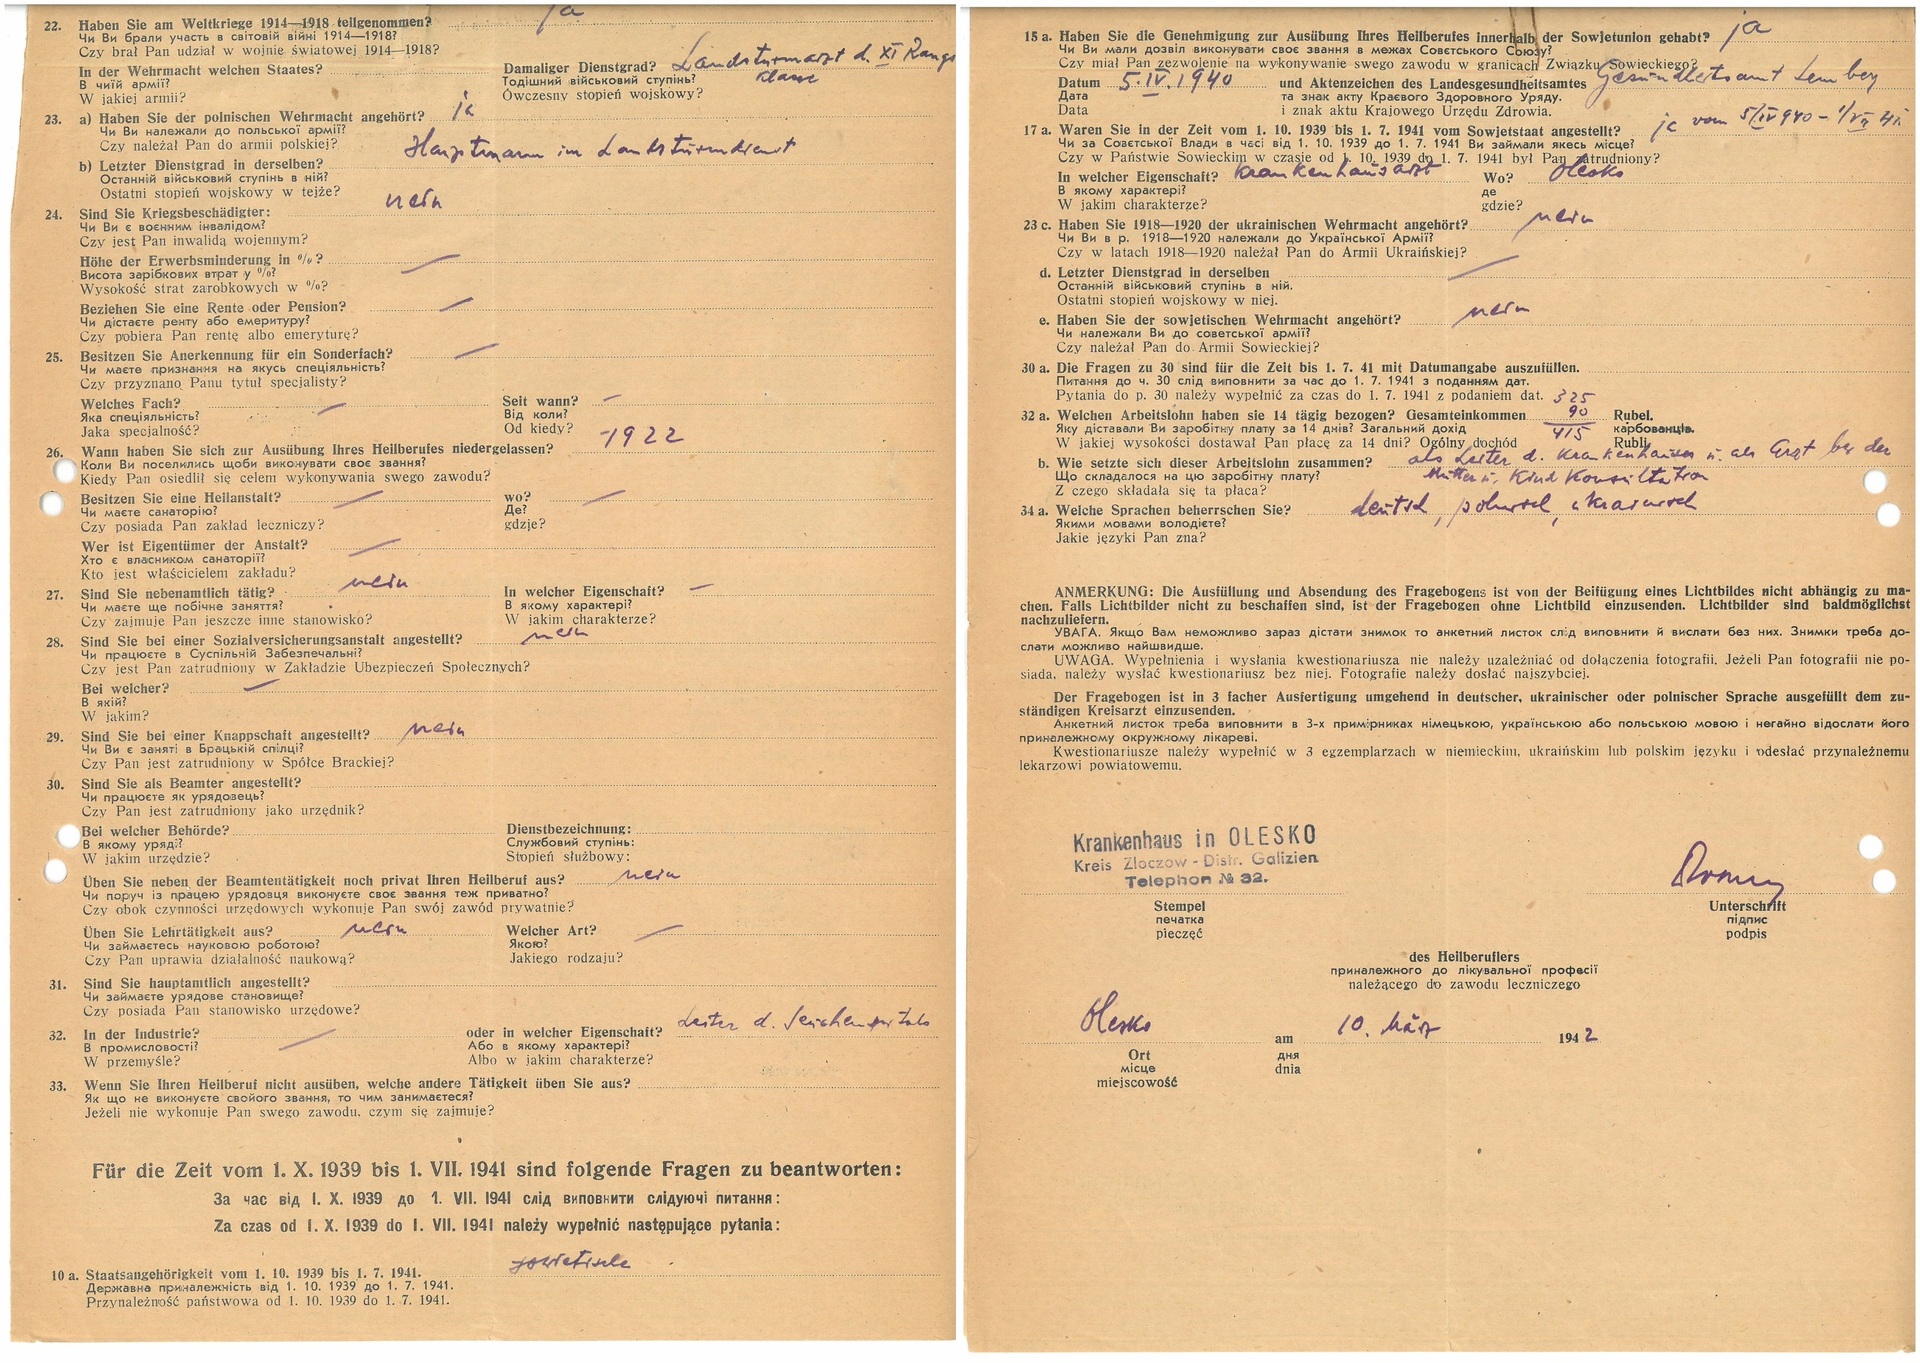 22. Haben Sie am Weltkriege 1914—1918 teilgenommen? ja
Чи Ви брали участь в світовій війні 1914—1918?
Czy brał Pan udział w wojnie światowej 1914—1918?
In der Wehrmacht welchen Staates? Damaliger Dienstgrad? Landsturmarzt d. XI Rangs
klasse
В чиїй армії? Тодішний військовий ступінь?
W jakiej armii? Ówczesny stopień wojskowy?
23. a) Haben Sie der polnischen Wehrmacht angehört? ja
Чи Ви належали до польської армії?
Czy należał Pan do armii polskiej? Hauptmann im Landsturmdienst
b) Letzter Dienstgrad in derselben?
Останній військовий ступінь в ній?
Ostatni stopień wojskowy w tejże? nein
24. Sind Sie Kriegsbeschädigter:
Чи Ви є воєнним інвалідом?
Czy jest Pan inwalidą wojennym?
Höhe der Erwerbsminderung in %? —
Висота зарібкових втрат у %?
Wysokość strat zarobkowych w %?
Beziehen Sie eine Rente oder Pension? —
Чи дістаєте ренту або емеритуру?
Czy pobiera Pan rentę albo emeryturę?
25. Besitzen Sie Anerkennung für ein Sonderfach? —
Чи маєте признання на якусь спеціяльність?
Czy przyznano Panu tytuł specjalisty?
Welches Fach? — Seit wann? —
Яка спеціяльність? Від коли?
Jaka specjalność? Od kiedy?
26. Wann haben Sie sich zur Ausübung Ihres Heilberufes niedergelassen? -1922
Коли Ви поселились щоби виконувати своє звання?
Kiedy Pan osiedlił się celem wykonywania swego zawodu?
Besitzen Sie eine Heilanstalt? — wo? —
Чи маєте санаторію? Де?
Czy posiada Pan zakład leczniczy? gdzie?
Wer ist Eigentümer der Anstalt? —
Хто є власником санаторії?
Kto jest właścicielem zakładu?
27. Sind Sie nebenamtlich tätig? nein In welcher Eigenschaft? —
Чи маєте ще побічне заняття? В якому характері?
Czy zajmuje Pan jeszcze inne stanowisko? W jakim charakterze?
28. Sind Sie bei einer Sozialversicherungsanstalt angestellt? nein
Чи працюєте в Суспільній Забезпечальні?
Czy jest Pan zatrudniony w Zakładzie Ubezpieczeń Społecznych?
Bei welcher? —
В якій?
W jakim?
29. Sind Sie bei einer Knappschaft angestellt? nein
Чи Ви є заняті в Брацькій спілці?
Czy Pan jest zatrudniony w Spółce Brackiej?
30. Sind Sie als Beamter angestellt?
Чи працюєте як урядовець?
Czy Pan jest zatrudniony jako urzędnik?
Bei welcher Behörde? Dienstbezeichnung:
В якому уряді? Службовий ступінь:
W jakim urzędzie? Stopień służbowy:
Üben Sie neben der Beamtentätigkeit noch privat Ihren Heilberuf aus? nein
Чи поруч із працею урядовця виконуєте своє звання теж приватно?
Czy obok czynności urzędowych wykonuje Pan swój zawód prywatnie?
Üben Sie Lehrtätigkeit aus? nein Welcher Art? —
Чи займаєтесь науковою роботою? Якою?
Czy Pan uprawia działalność naukową? Jakiego rodzaju?
31. Sind Sie hauptamtlich angestellt?
Чи займаєте урядове становище?
Czy posiada Pan stanowisko urzędowe?
32. In der Industrie? — oder in welcher Eigenschaft? Leiter d. Seuchenspitals
В промисловості? Або в якому характері?
W przemyśle? Albo w jakim charakterze?
33. Wenn Sie Ihren Heilberuf nicht ausüben, welche andere Tätigkeit üben Sie aus?
Як що не виконуєте свойого звання, то чим занимаєтеся?
Jeżeli nie wykonuje Pan swego zawodu, czym się zajmuje?
Für die Zeit vom 1. X. 1939 bis 1. VII. 1941 sind folgende Fragen zu beantworten:
За час від I. X. 1939 до 1. VII. 1941 слід виповнити слідуючі питання:
Za czas od I. X. 1939 do I. VII. 1941 należy wypełnić następujące pytania:
10 a. Staatsangehörigkeit vom 1. 10. 1939 bis 1. 7. 1941. sowietische
Державна приналежність від 1. 10. 1939 до 1. 7. 1941.
Przynależność państwowa od 1. 10. 1939 do 1. 7. 1941.
15 a. Haben Sie die Genehmigung zur Ausübung Ihres Heilberufes innerhalb der Sowjetunion gehabt? ja
Чи Ви мали дозвіл виконувати своє звання в межах Совєтського Союзу?
Czy miał Pan zezwolenie na wykonywanie swego zawodu w granicach Związku Sowieckiego?
Datum 5.IV.1940 und Aktenzeichen des Landesgesundheitsamtes Gesundheitsamt Lemberg
Дата та знак акту Краєвого Здоровного Уряду.
Data i znak aktu Krajowego Urzędu Zdrowia.
17 a. Waren Sie in der Zeit vom 1. 10. 1939 bis 1. 7. 1941 vom Sowjetstaat angestellt? ja vom 5/IV 940 - 1/VII 41.
Чи за Совєтської Влади в часі від 1. 10. 1939 до 1. 7. 1941 Ви займали якесь місце?
Czy w Państwie Sowieckim w czasie od 1. 10. 1939 do 1. 7. 1941 był Pan zatrudniony?
In welcher Eigenschaft? Krankenhausarzt Wo? Olesko
В якому характері? де
W jakim charakterze? gdzie?
23 c. Haben Sie 1918—1920 der ukrainischen Wehrmacht angehört? nein
Чи Ви в р. 1918—1920 належали до Української Армії?
Czy w latach 1918—1920 należał Pan do Armii Ukraińskiej?
d. Letzter Dienstgrad in derselben —
Останній військовий ступінь в ній.
Ostatni stopień wojskowy w niej.
e. Haben Sie der sowjetischen Wehrmacht angehört? nein
Чи належали Ви до советської армії?
Czy należał Pan do Armii Sowieckiej?
30 a. Die Fragen zu 30 sind für die Zeit bis 1. 7. 41 mit Datumangabe auszufüllen.
Питання до ч. 30 слід виповнити за час до 1. 7. 1941 з поданням дат.
Pytania do p. 30 należy wypełnić za czas do 1. 7. 1941 z podaniem dat. 325
32 a. Welchen Arbeitslohn haben sie 14 tägig bezogen? Gesamteinkommen 90 Rubel.
Яку діставали Ви заробітну плату за 14 днів? Загальний дохід 415 карбованців.
W jakiej wysokości dostawał Pan płacę za 14 dni? Ogólny dochód Rubli
b. Wie setzte sich dieser Arbeitslohn zusammen? als Leiter d. Krankenhauses u. als Arzt bei der
Що складалося на цю заробітну плату? Mutter u. Kind Konsultation
Z czego składała się ta płaca?
34 a. Welche Sprachen beherrschen Sie? deutsch, polnisch, ukrainisch
Якими мовами володієте?
Jakie języki Pan zna?
ANMERKUNG: Die Ausfüllung und Absendung des Fragebogens ist von der Beifügung eines Lichtbildes nicht abhängig zu ma-
chen. Falls Lichtbilder nicht zu beschaffen sind, ist der Fragebogen ohne Lichtbild einzusenden. Lichtbilder sind baldmöglichst
nachzuliefern.
УВАГА. Якщо Вам неможливо зараз дістати знимок то анкетний листок слід виповнити й вислати без них. Знимки треба до-
слати можливо найшвидше.
UWAGA. Wypełnienia i wysłania kwestionariusza nie należy uzależniać od dołączenia fotografii. Jeżeli Pan fotografii nie po-
siada, należy wysłać kwestionariusz bez niej. Fotografie należy dosłać najszybciej.
Der Fragebogen ist in 3 facher Ausfertigung umgehend in deutscher, ukrainischer oder polnischer Sprache ausgefüllt dem zu-
ständigen Kreisarzt einzusenden.
Анкетний листок треба виповнити в 3-х примірниках німецькою, українською або польською мовою і негайно відослати його
приналежному окружному лікареві.
Kwestionariusze należy wypełnić w 3 egzemplarzach w niemieckim, ukraińskim lub polskim języku i odesłać przynależnemu
lekarzowi powiatowemu.
Krankenhaus in OLESKO
Kreis Zloczow - Distr. Galizien
Telephon № 32.
Stempel Unterschrift
печатка підпис
pieczęć podpis
des Heilberuflers
приналежного до лікувальної професії
należącego do zawodu leczniczego
Olesko am 10. März 1942
Ort дня
місце dnia
miejscowość